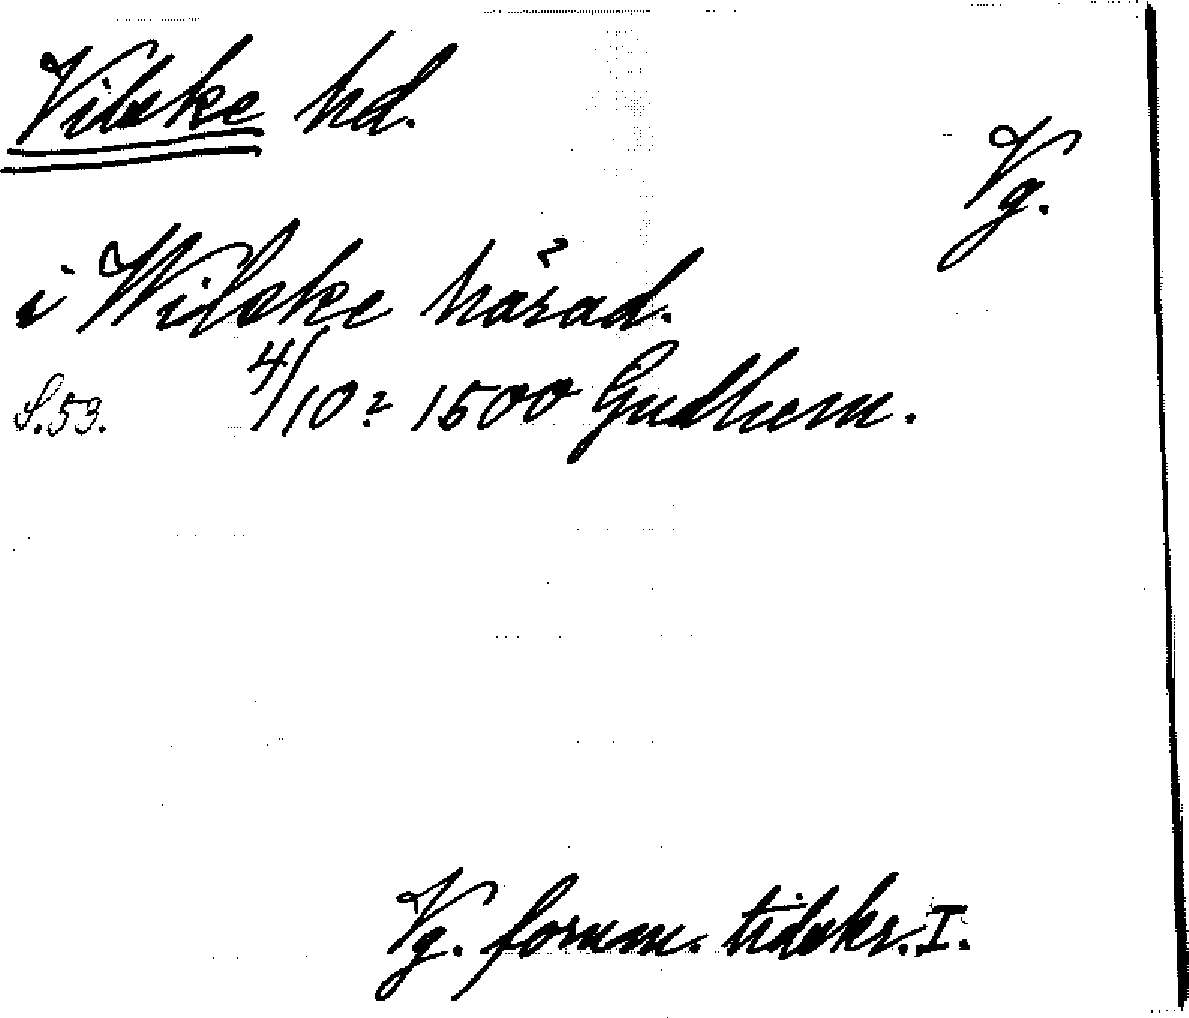 Vilske hd.
Vg.
i Wilske härad.
S.53. 4/10? 1500 Gudhem.
Vg. fornm. tidskr. I.